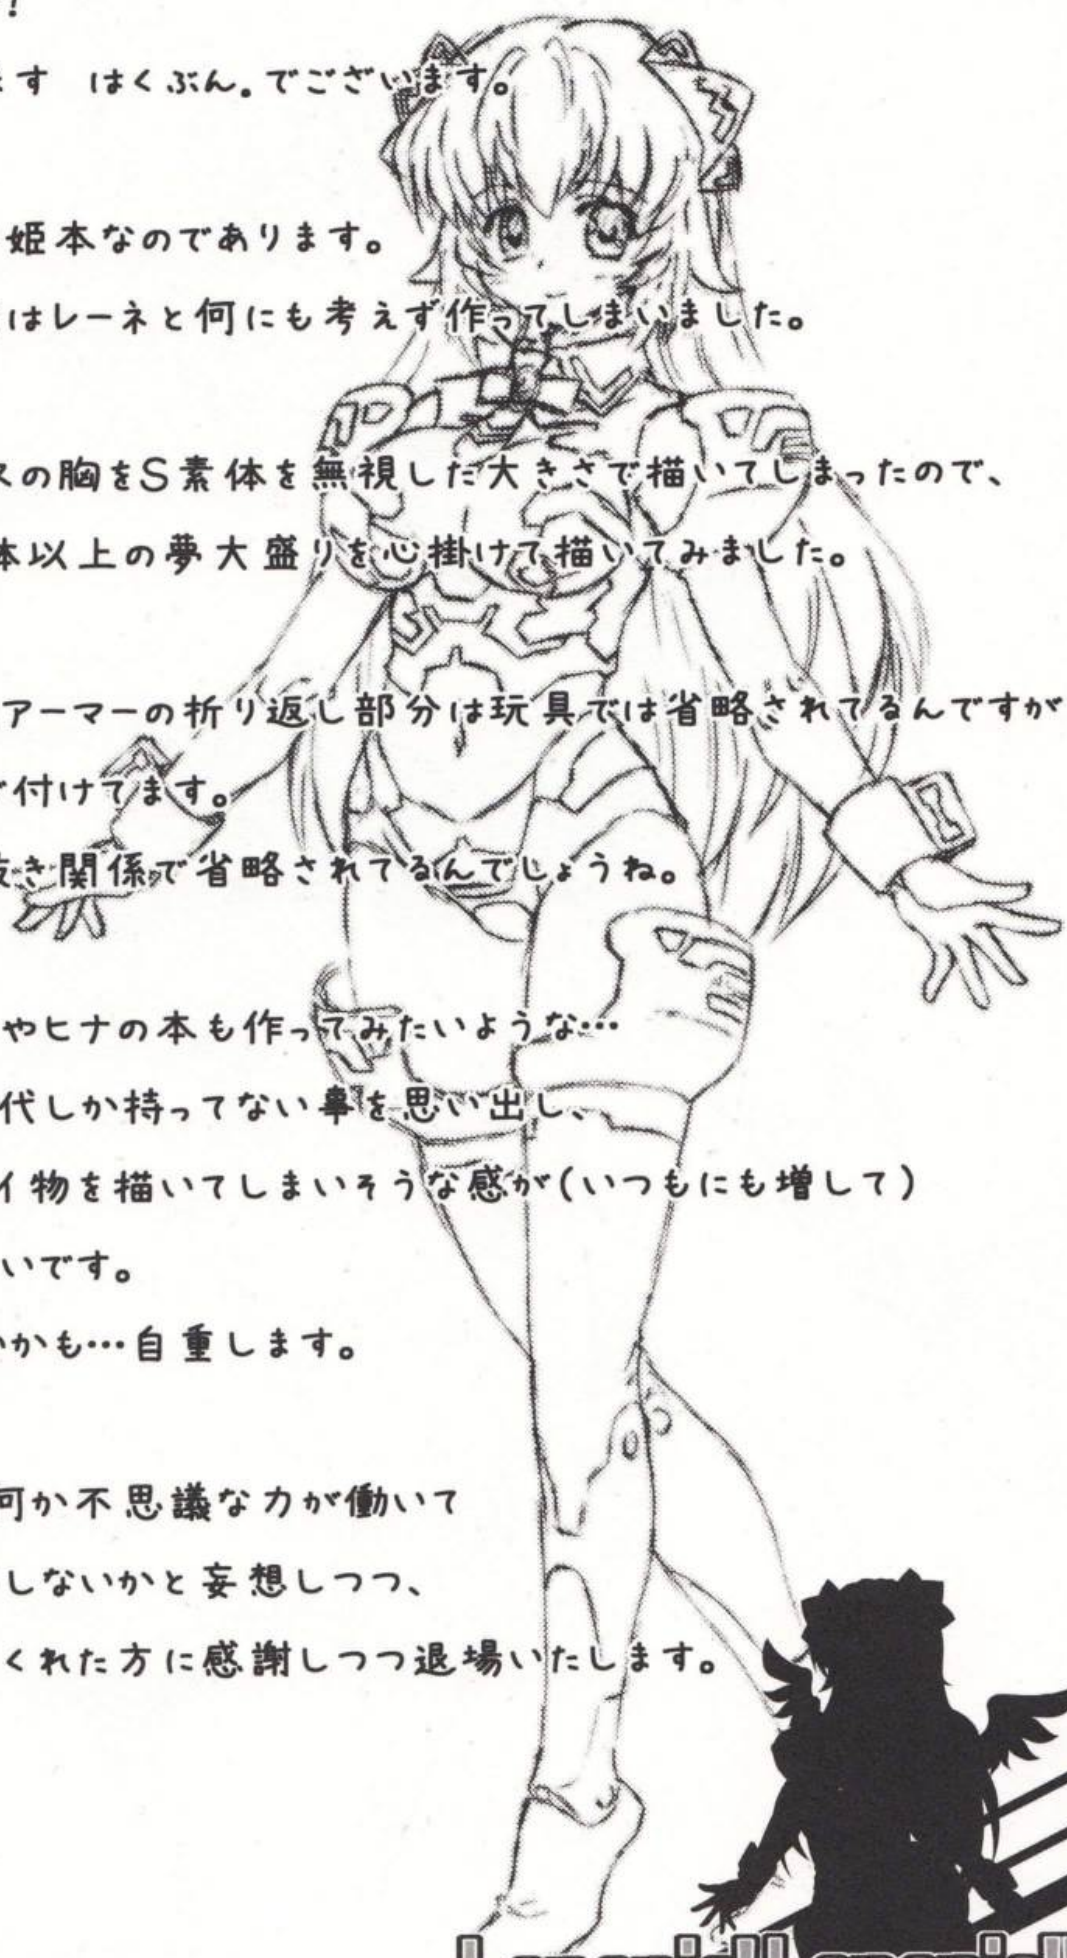 !
ます　はくぶん。でございます。
姫本なのであります。
はレーネと何にも考えず作ってしまいました。
スの胸をS素体を無視した大きさで描いてしまったので、
体以上の夢大盛りを心掛けて描いてみました。
アーマーの折り返し部分は玩具では省略されてるんですが
付けてます。
抜き関係で省略されてるんでしょうね。
やヒナの本も作ってみたいような…
代しか持ってない事を思い出し、
イ物を描いてしまいそうな感が(いつもにも増して)
いです。
かも…自重します。
何か不思議な力が働いて
しないかと妄想しつつ、
くれた方に感謝しつつ退場いたします。